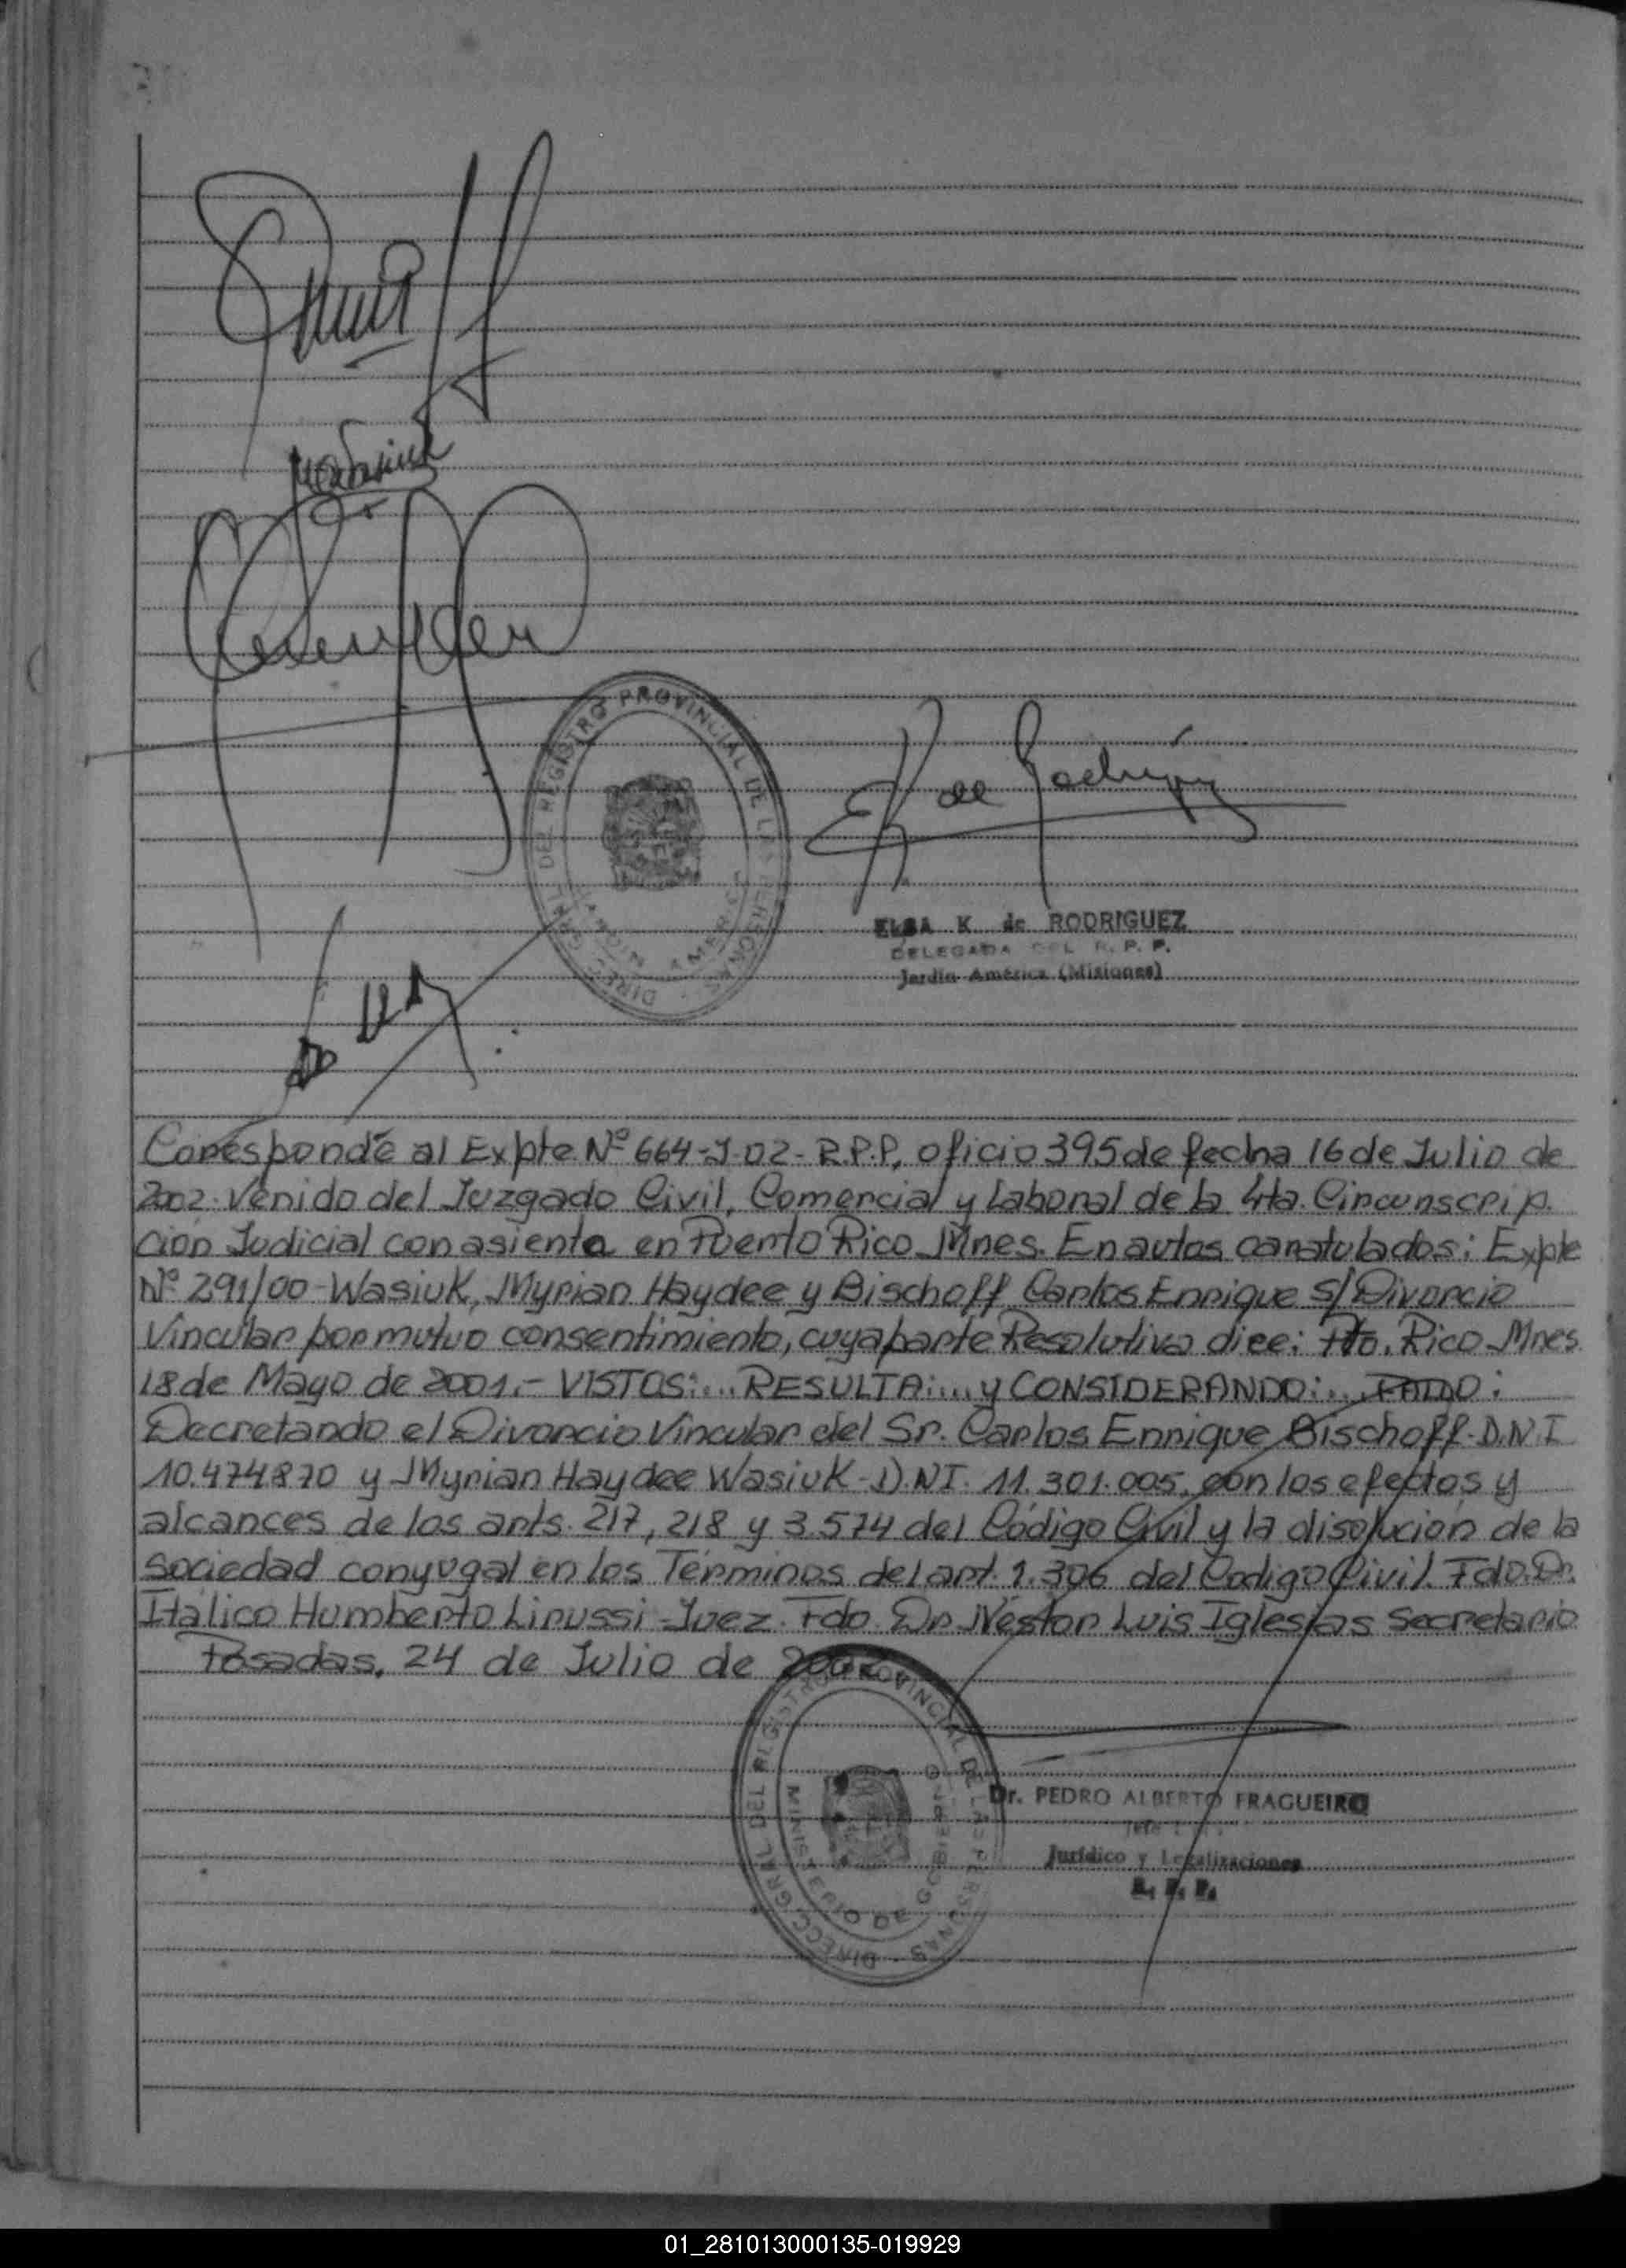 DIRECC. GRAL. DEL REGISTRO PROVINCIAL DE LAS PERSONAS
JARDIN AMERICA
E K de Rodríguez
ELSA K de RODRIGUEZ
DELEGADA DEL R. P. P.
Jardín América (Misiones)
Corresponde al Expte Nº 664-J-02-R.P.P. oficio 395 de fecha 16 de Julio de
2002. Venido del Juzgado Civil, Comercial y Laboral de la 4ta. Circunscrip.
ción Judicial con asiento en Puerto Rico Mnes. En autos caratulados: Expte
Nº 291/00-Wasiuk, Myrian Haydee y Bischoff Carlos Enrique s/Divorcio
Vincular por mutuo consentimiento, cuya parte Resolutiva dice: Pto. Rico Mnes.
18 de Mayo de 2001.- VISTOS:... RESULTA:... y CONSIDERANDO:... FALLO:
Decretando el Divorcio Vincular del Sr. Carlos Enrique Bischoff-D.N.I
10.474.870 y Myrian Haydee Wasiuk-D.NI. 11.301.005, con los efectos y
alcances de los arts. 217, 218 y 3.574 del Código Civil y la disolucion de la
sociedad conyugal en los Términos del art. 1.306 del Codigo Civil. Fdo. Dr.
Italico Humberto Lirussi-Juez. Fdo. Dr Néstor Luis Iglesias Secretario
Posadas, 24 de Julio de 2002.
DIRECC. GRAL. DEL REGISTRO PROVINCIAL DE LAS PERSONAS
MINISTERIO DE GOBIERNO
Dr. PEDRO ALBERTO FRAGUEIRO
Jurídico y Legalizaciones
R. P. P.
01_281013000135-019929